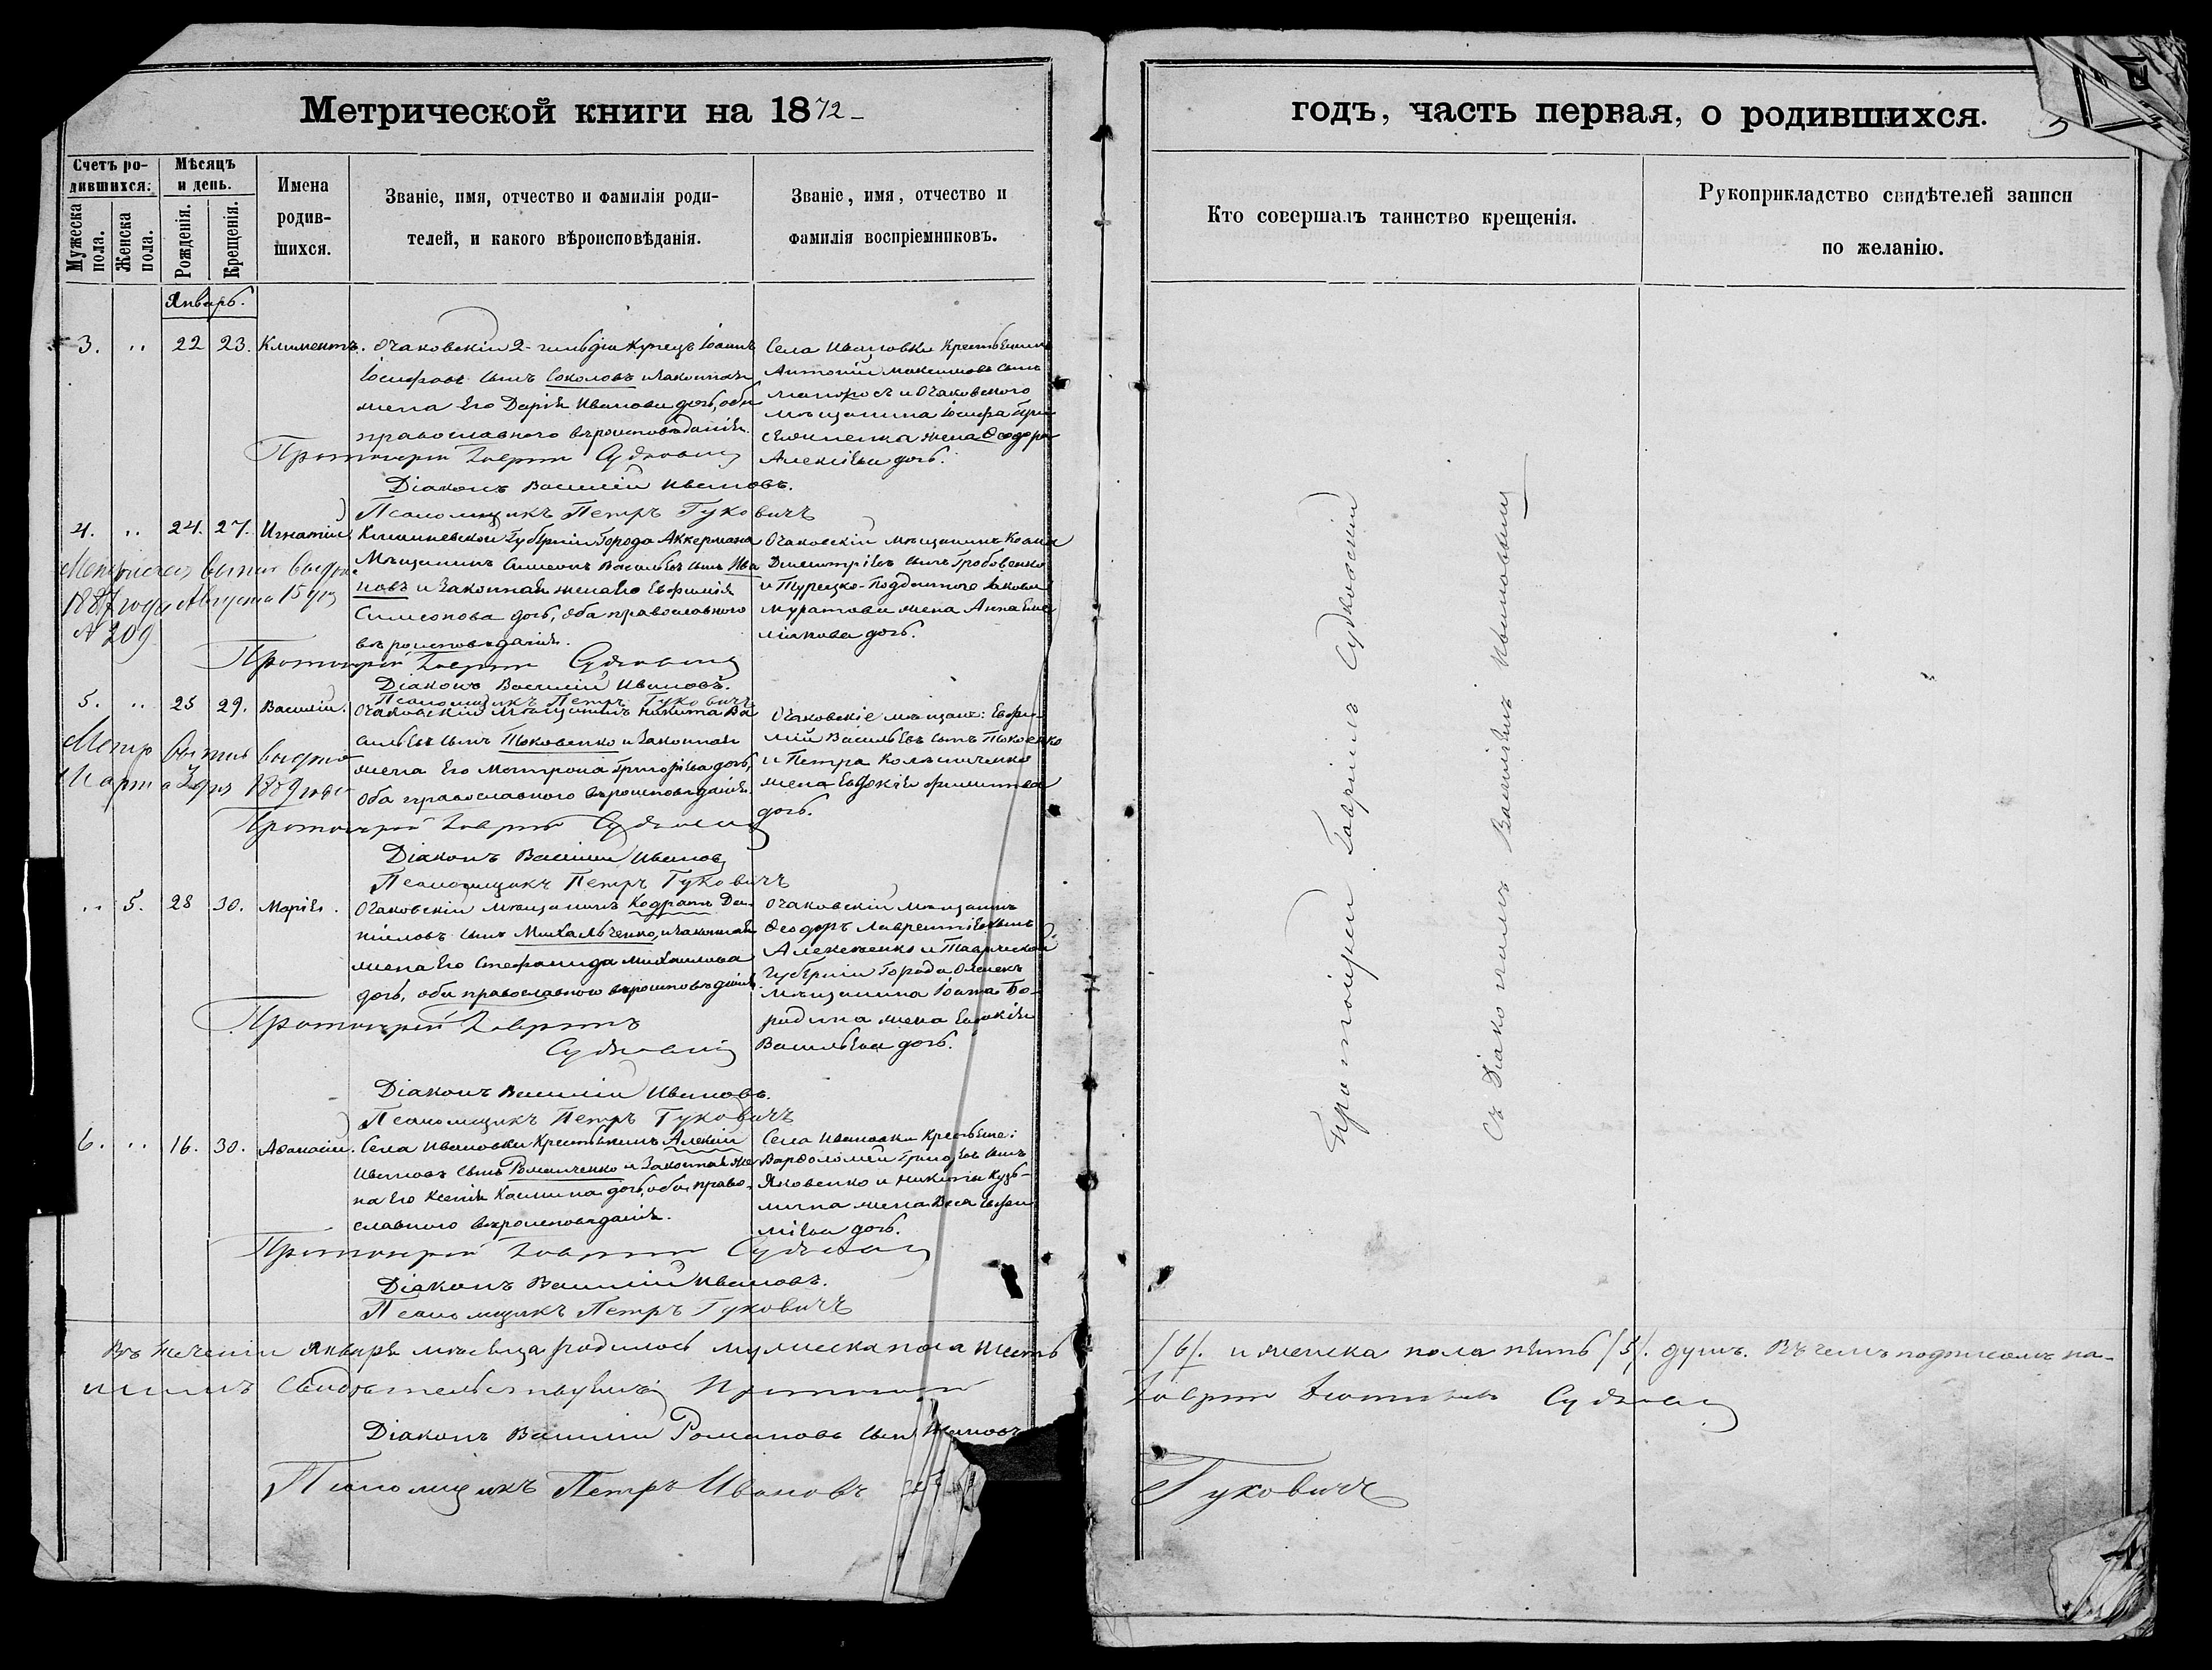 Метрической книги на 1872
годъ, часть первая, о родившихся.
Счетъ ро-
дившихся.
Мужеска
пола.
Женска
пола.
Мѣсяцъ
и день.
Рожденія.
Крещенія.
Имена
родив-
шихся.
Званіе, имя, отчество и фамилія роди-
телей, и какого вѣроисповѣданія.
Званіе, имя, отчество и
фамилія воспріемниковъ.
Кто совершалъ таинство крещенія.
Рукоприкладство свидѣтелей записи
по желанію.
Январь.
3. " 22 23. Климентъ.
Очаковскій 2-гильдіи Купецъ Іоаннъ
Іосифовъ сынъ Соколовъ и законная
жена его Дарія Иванова дочь, оба
православнаго вѣроисповѣданія.
Села Ивановки Крестьянинъ
Антоній Максимовъ сынъ
и Очаковского
мѣщанина Іосифа
жена Ѳеодора
Алексіева дочь.
Протоіерей Гавріилъ Судковскій
Діаконъ Василій Ивановъ.
Псаломщикъ Петръ Гуковичъ
4. " 24. 27. Игнатій
Кишиневской Губерніи Города Аккермана
Мѣщанинъ Симеонъ Васильевъ сынъ Ива
новъ и законная жена его Евфимія
Симеонова дочь, оба православного
вѣроисповѣданія.
Очаковскій мѣщанинъ
Димитріевъ сынъ Гробовенко
и Турецко-Подданного Іакова
Муратова жена Анна Еме
ліянова дочь.
1887 года Августа 15 дня
№ 209
Протоіерей Гавріилъ Судковскій
Діаконъ Василій Ивановъ.
Псаломщикъ Петръ Гуковичъ
5. " 25 29. Василій.
Очаковскій Мѣщанинъ Никита Ва
сильевъ сынъ Токовенко и законная
жена его Матрона Григоріева дочь,
оба православного вѣроисповѣданія.
Очаковскіе мѣщане: Евфи
мій Васильевъ сынъ Токовенко
и Петра Колесниченко
жена Евдокія Филиппова
дочь.
Метр выпись выдана
Марта 3 дня 1889 года
Протоіерей Гавріилъ Судковскій
Діаконъ Василій Ивановъ
Псаломщикъ Петръ Гуковичъ
" 5. 28 30. Марія.
Очаковскій мѣщанинъ Кодратъ Да
ніиловъ сынъ Михальченко, и законная
жена его Стефанида Михаилова
дочь, оба православного вѣроисповѣданія.
Очаковскій мѣщанинъ
Ѳеодоръ Лаврентіевъ сынъ
Алексеенко и Таврической
Губерніи Города Олешекъ
Мѣщанина Іоанна Бо-
родина жена Евдокія
Васильева дочь.
Протоіерей Гавріилъ
Судковскій
Діаконъ Василій Ивановъ.
Псаломщикъ Петръ Гуковичъ
6. " 16. 30. Аѳанасій.
Села Ивановки Крестьянинъ Алексій
Ивановъ сынъ Романченко и законная же
на его Ксенія Касьіна дочь, оба право-
славного вѣроисповѣданія.
Села Ивановки Крестьяне:
Варѳоломей сынъ
Яковенко и Никиты Кузь-
мина жена Васса Евфи
міева дочь.
Протоіерей Гавріилъ Судковскій
Діаконъ Василій Ивановъ.
Псаломщикъ Петръ Гуковичъ
Протоіерей Гавріилъ Судковскій
съ Діакономъ Василіемъ Ивановымъ
Въ теченіи Январѣ мѣсяца родилось мужеска пола шесть
/6/. и женска пола пять /5/. душъ. Въ чемъ подписомъ на-
шимъ свидѣтельствуемъ Протоіерей
Гавріилъ Судковскій
Діаконъ Василій Романовъ сынъ Ивановъ
Псаломщикъ Петръ Ивановъ
Гуковичъ